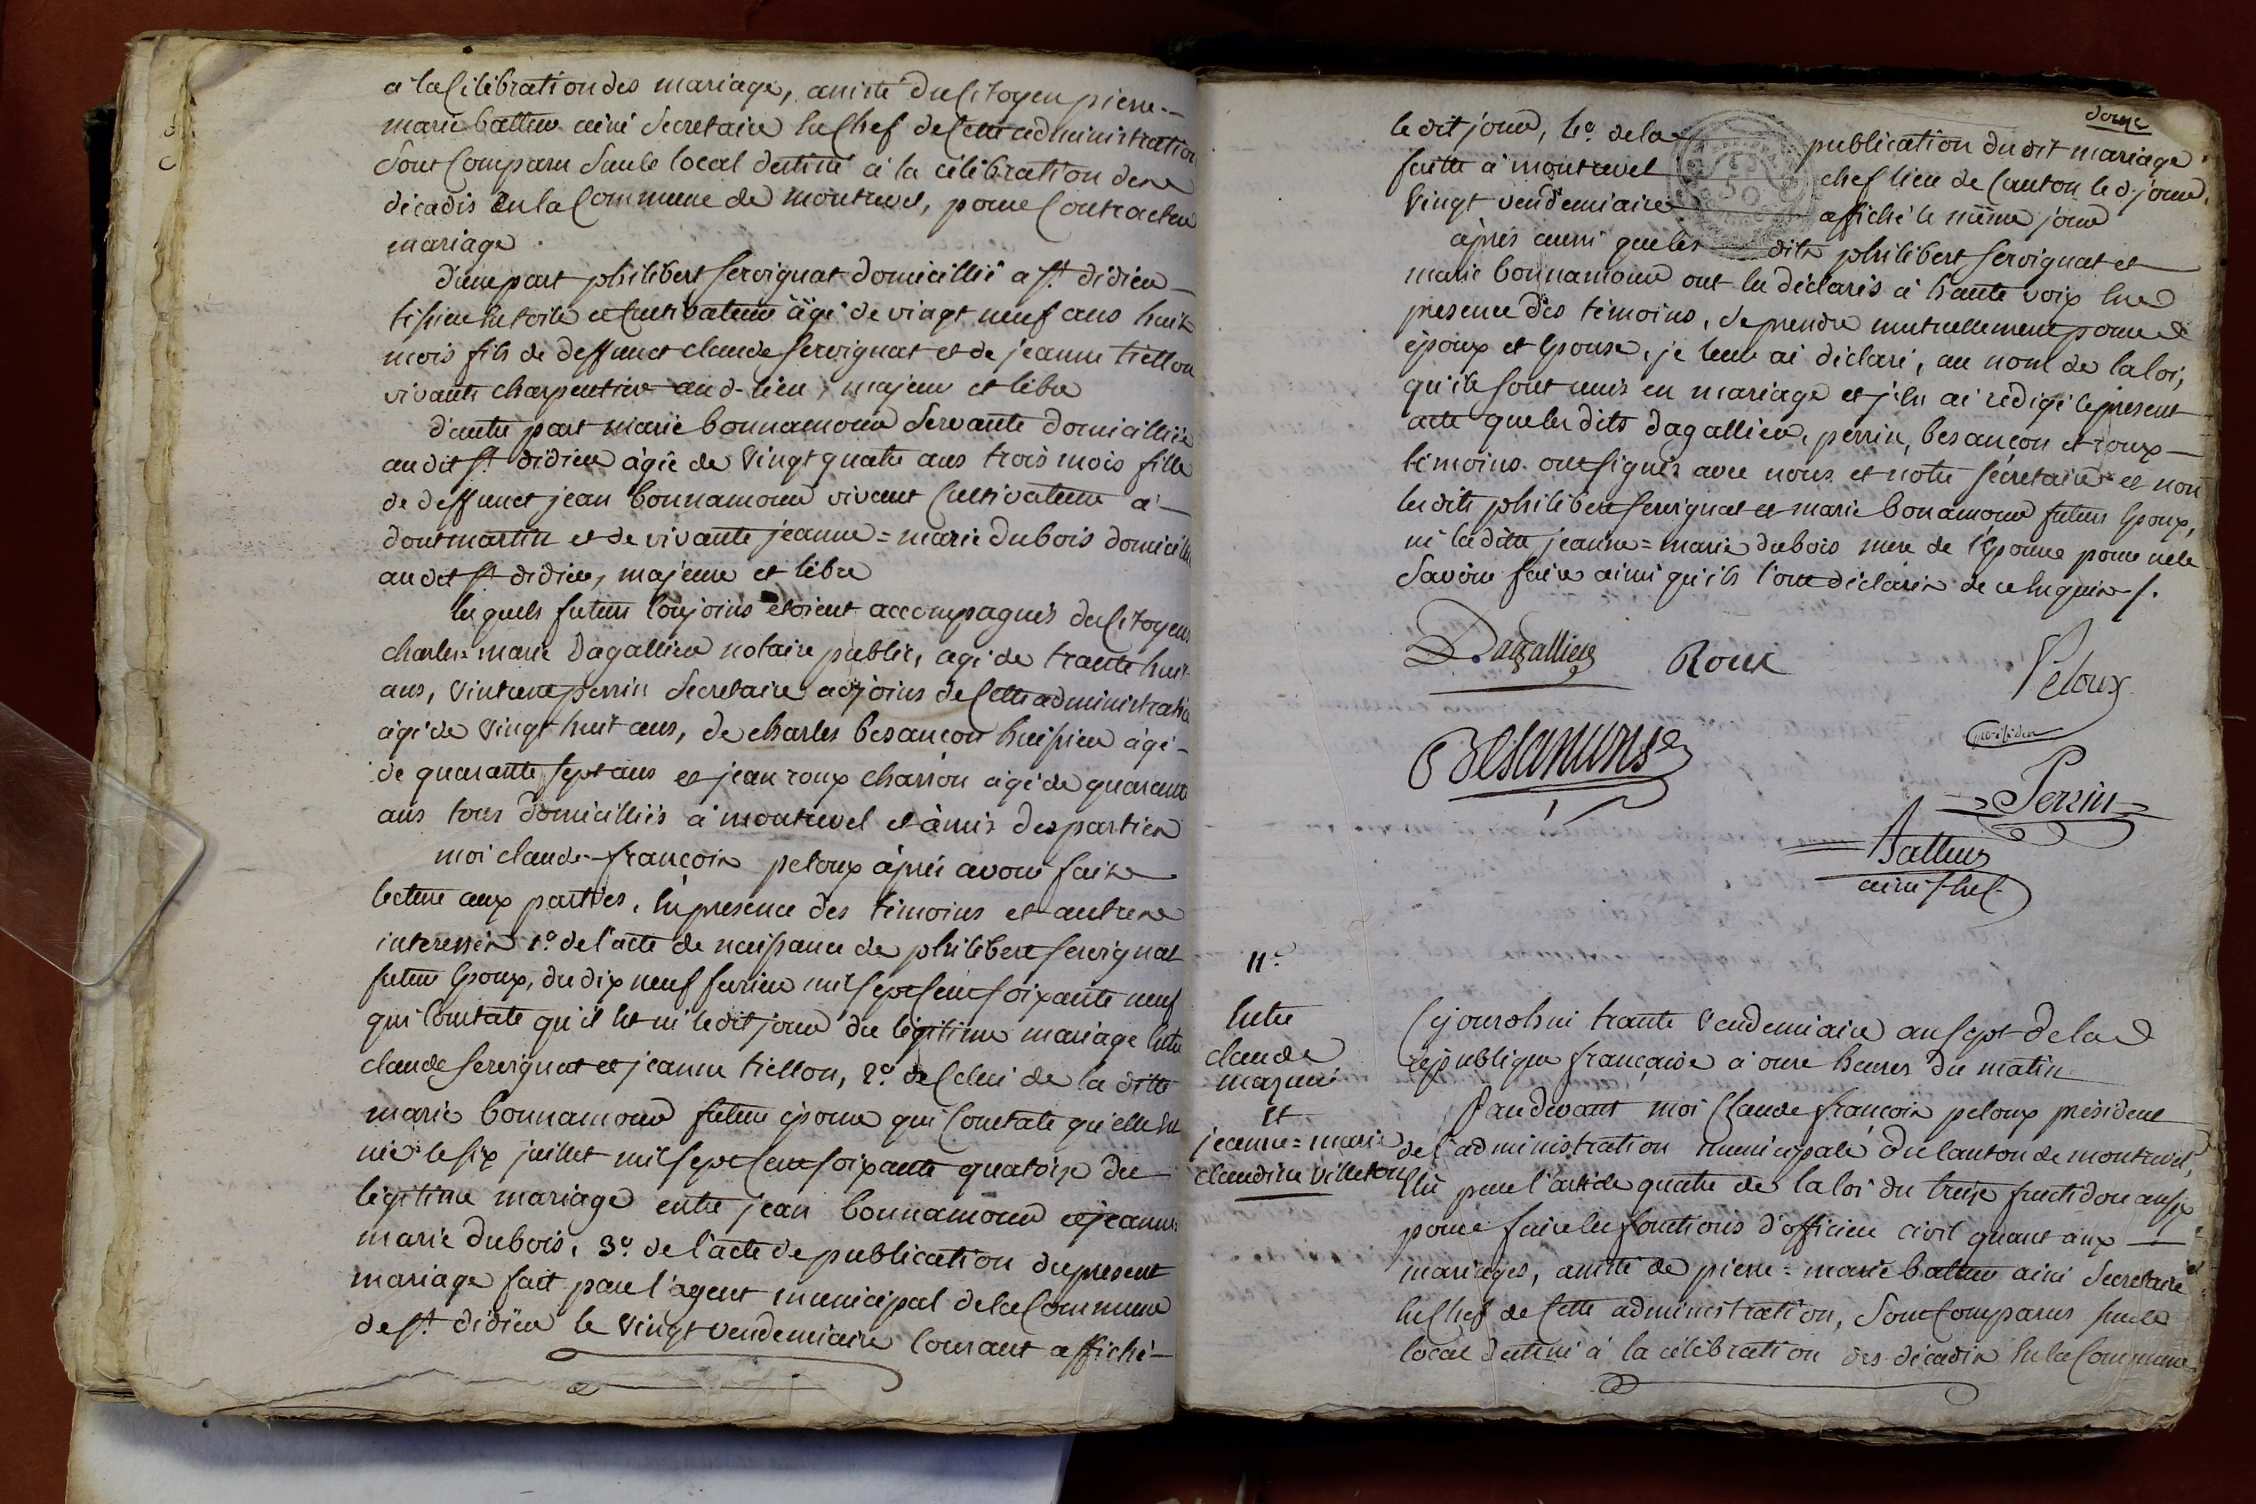 a la Celebration des mariage, assisté du Citoyen pierre-
marie battur ainé Secretaire En Chef de Cette administration
Sont Comparu Sur le local destiné à la célébration des
décadis En la Commune de montrevel, pour Contracter
mariage.
d'une part philibert servignat domicillié a st. didier
tissieur En toile et Cultivateur âgé de vingt neuf ans huit
mois fils de deffunct claude servignat et de jeanne tiellon
vivants charpentier aud. lieu, majeur et libre
d'autre part marie bonnamour Servante domicilliée
au dit st. didier âgée de Vingt quatre ans trois mois fille
de deffunct jean bonnamour vivant Cultivateur à
domtmartin et de vivante jeanne=marie dubois domiciliée
au dit st. didier, majeure et libre
lesquels futurs Conjoins étoient accompagnés du Citoyens
charles=marie Dagallier notaire public, agé de trante huit
ans, Vincent perrin Secretaire adjoins de Cette administration
âgé de Vingt huit ans, de charles besançon huissier âgé
de quarante sept ans et jean roux charron âgé de quarante
ans tous domicilliés à montrevel et âmis des parties
moi claude-françois peloux âprés avoir fait
lecture aux parties, En presence des témoins et autres
interessés 1º de l'acte de naissance de philibert servignat
futur Epoux, du dix neuf fevrier mil sept Cent soixante neuf
qui Constate qu'il Est né le dit jour du légitime mariage Entre
claude servignat et jeanne tiellon, 2º de Celui de la ditte
marie bonnamour future épouse qui Constate qu'elle Est
née le six juillet mil sept Cent soixante quatorze du
légitime mariage entre jean bonnamour et jeanne=
marie dubois, 3º de l'acte de publication du present
mariage fait par l'agent municipal de la Commune
de st. didier le Vingt vendemiaire Courant affiché
douze
le dit jour, 4º de la publication du dit mariage
faitte à montrevel chef lieu de Canton le d. jour
Vingt vendemiaire affiché le même jour
âprés aussi que les dits philibert servignat et
marie bonnamour ont Eu déclarés à haute voix En
presence des témoins, de prendre mutuellement pour
époux et Epouse, je leur ai déclaré, au nom de la loi,
qu'ils sont unis en mariage et j'En ai rédigé le present
acte que les dits dagallier, perrin, besançon et roux
témoins ont signés avec nous et notre sécretaire et non
les dits philibert servignat et marie bonamour futurs Epoux,
ni la ditte jeanne=marie dubois mere de l'Epouse pour ne le
Savoir faire ainsi qu'ils l'ont déclarés de ce Enquis /.
Dagallier Roux Peloux
président
Besancons
Perrin
Battur
ainé S. En chef
11e
Entre
claude
mazuir
et
jeanne=marie
claudine Villeton
Cejourdhui trante Vendemiaire an sept de la
république française à onze heures du matin
Pardevant moi Claude françois peloux président
de l'administration municipale du Canton de montrevel,
Elu pour l'article quatre de la loi du treize fructidor an six
pour faire les fonctions d'officier civil quant aux
mariages, assisté de pierre=marie battur ainé Secretaire
En Chef de Cette administration, Sont Comparus sur le
local destiné à la célébration des décadis En la Commune